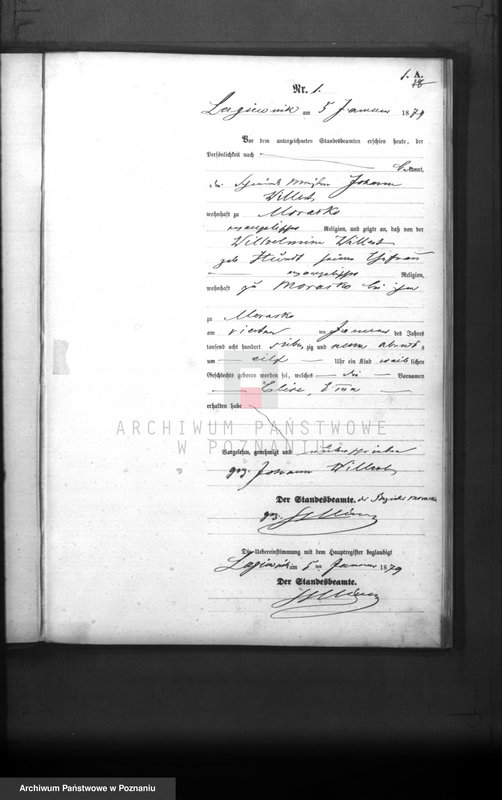 1. A.
Nr. 1.
Lagiewnik am 5 Januar 1879
Vor dem unterzeichneten Standesbeamten erschien heute, der
Persönlichkeit nach
bekannt,
Johann
Willert
wohnhaft zu Morasko
evangelischer Religion, und zeigte an, daß von der
Wilhelmine Willert
geb. Hundt seiner Ehefrau
evangelischer Religion,
wohnhaft zu Morasko bei ihm
zu Morasko
am vierten ten Januar des Jahres
tausend acht hundert siebenzig und neun Abends
um eilf Uhr ein Kind weiblichen
Geschlechts geboren worden sei, welches die Vornamen
Elise,
erhalten habe
Vorgelesen, genehmigt und unterschrieben
gez. Johann Willert
Der Standesbeamte. des Bezirks Morasko
gez.
Die Uebereinstimmung mit dem Hauptregister beglaubigt
Lagiewnik am 5 ten Januar 1879
Der Standesbeamte.
ARCHIWUM PAŃSTWOWE
W POZNANIU
Archiwum Państwowe w Poznaniu